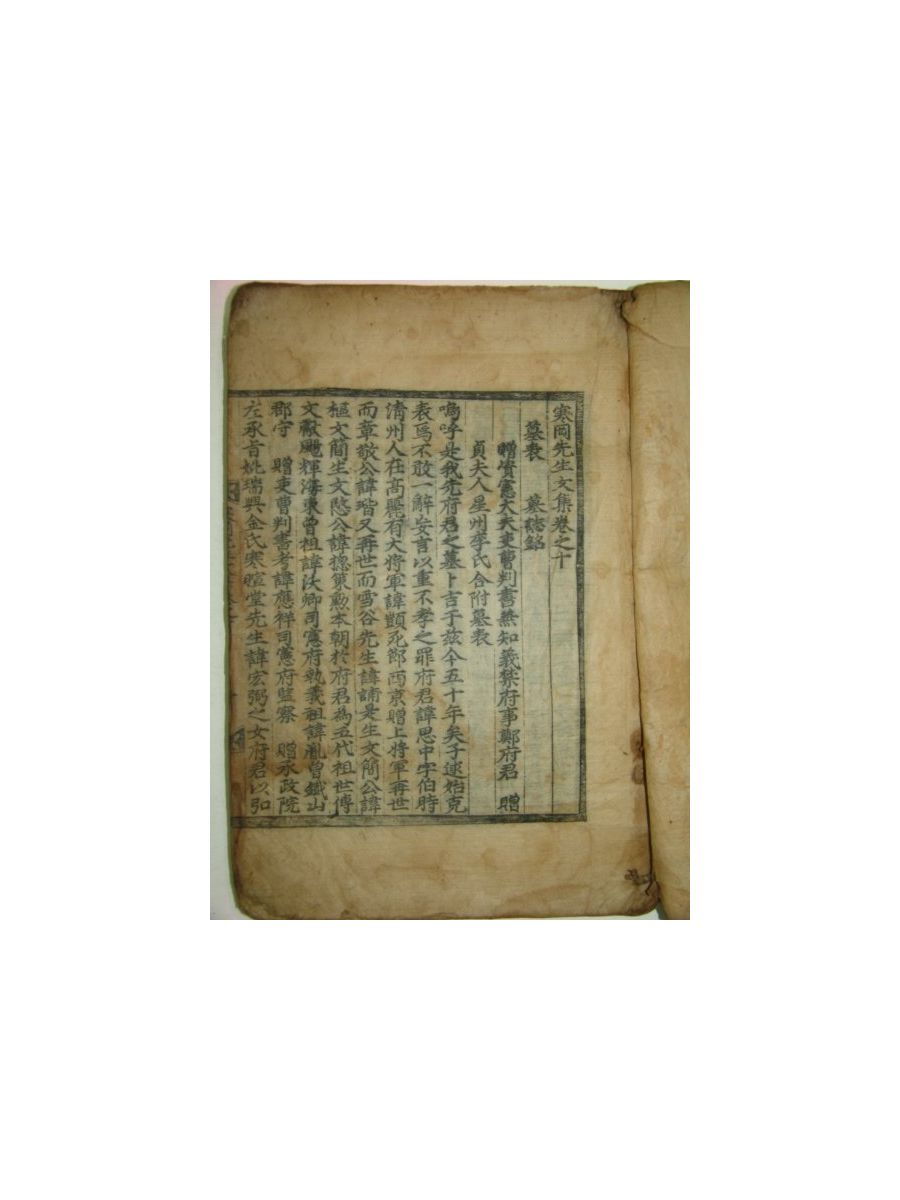 寒岡先生文集卷之十
墓表 墓誌銘
贈資憲大夫吏曹判書兼知義禁府事鄭府君 贈
貞夫人星州李氏合祔墓表
嗚呼是我先府君之墓卜吉于茲今五十年矣子逑始克
表焉不敢一辭妄言以重不孝之罪府君諱思中字伯時
淸州人在高麗有大將軍諱顗死節西京贈上將軍再世
而章敬公諱瑎又再世而雪谷先生諱誧是生文簡公諱
樞文簡生文愍公諱摠策勳本朝於府君爲五代祖世傳
文獻颺輝海東曾祖諱沃卿司憲府執義祖諱胤曾鐵山
郡守 贈吏曹判書考諱應祥司憲府監察 贈承政院
左承旨妣瑞興金氏寒暄堂先生諱宏弼之女府君以弘